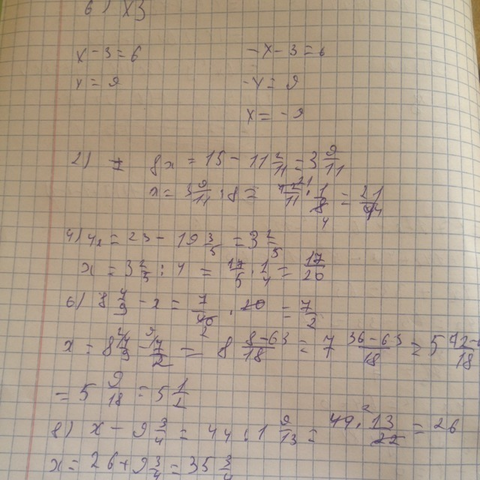 x - 3 = 6    - x - 3 = 6
x = 9    - x = 9
x = - 9
2) 8x = 15 - 11 2/11 = 3 9/11
x = 3 9/11 : 8 = 42/11 · 1/8 = 21/44
4) 4x = 23 - 19 3/5 = 3 2/5
x = 3 2/5 : 4 = 17/5 · 1/4 = 17/20
6) 8 4/9 - x = 7/40 · 20 = 7/2
x = 8 4/9 - 7/2 = 8 8-63/18 = 7 36-63/18 =
= 5 9/18 = 5 1/2
8) x - 9 3/4 = 44 : 1 9/13 = 44 · 13/22 = 26
x = 26 + 9 3/4 = 35 3/4